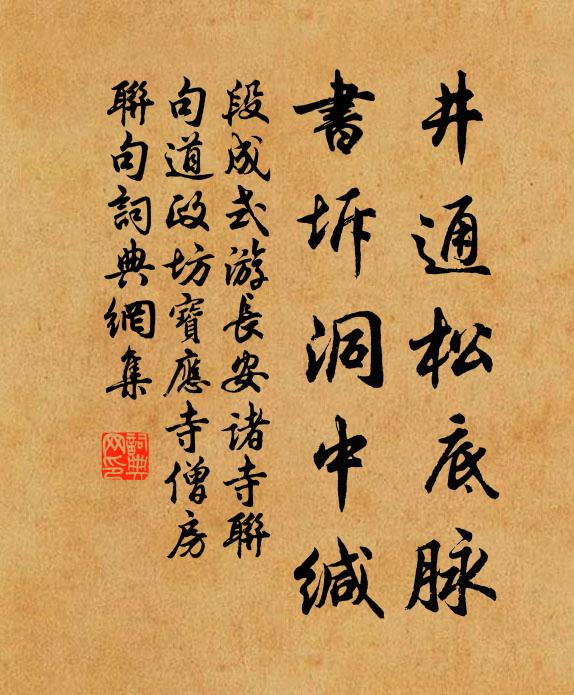 井通松底脉
書坼洞中緘
段成式游長安諸寺聯
句道政坊寶應寺僧房
聯句詞典網集
詞典網印